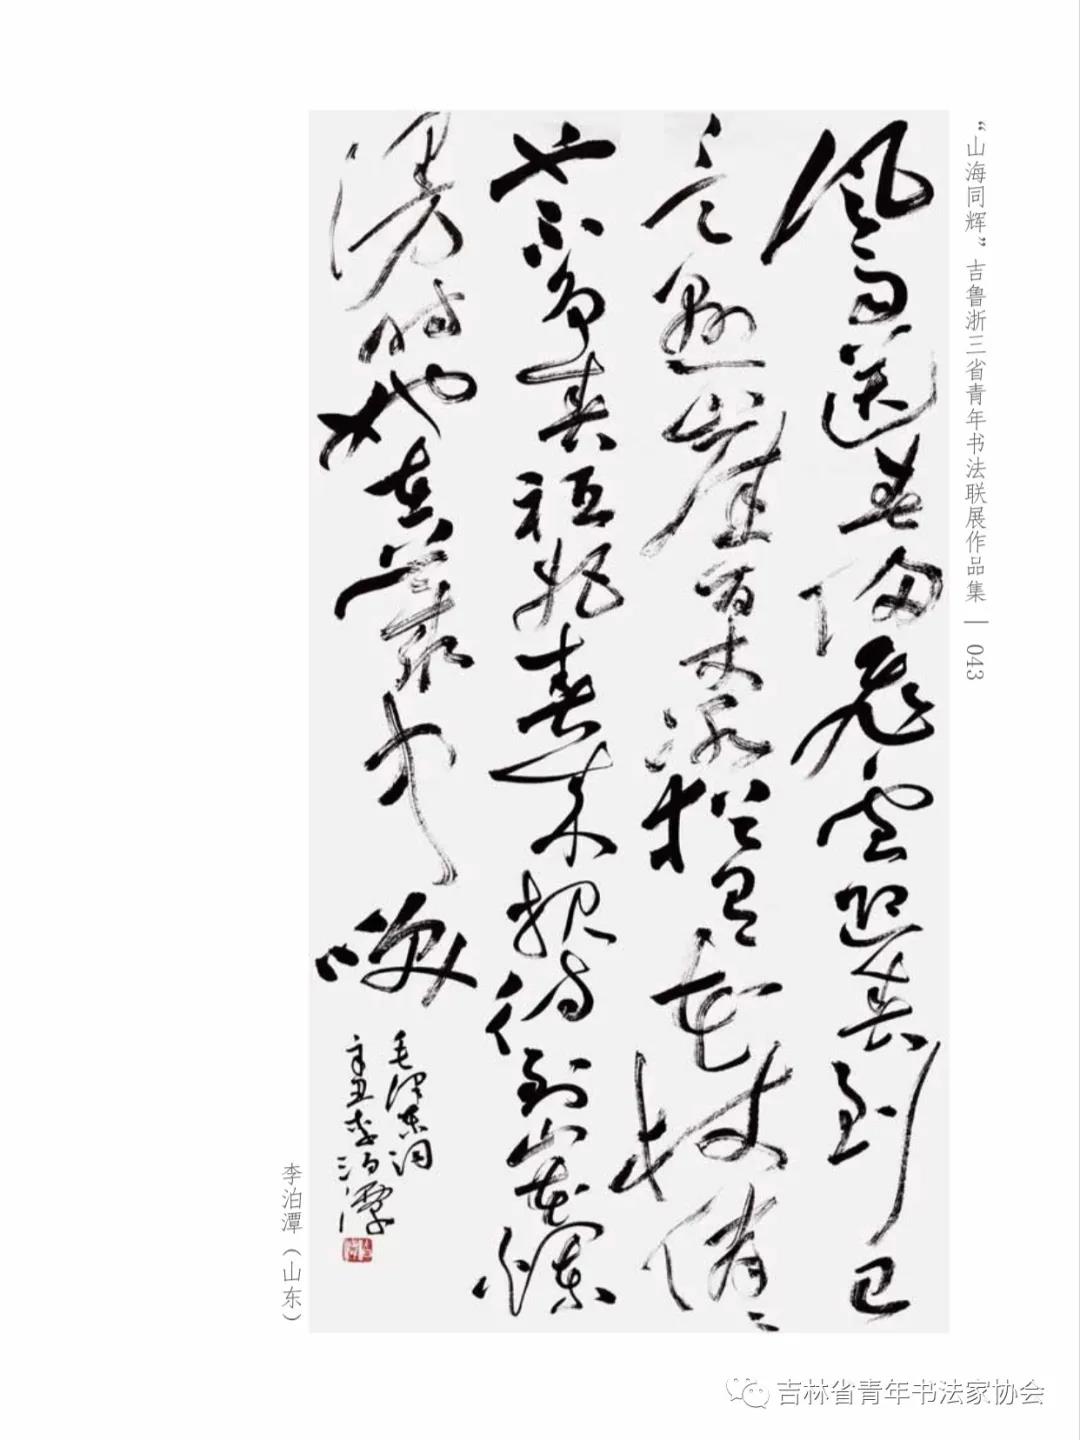 “山海同辉”吉鲁浙三省青年书法联展作品集 | 043
風雨送春歸飛雪迎春到已
是懸崖百丈冰猶有花枝俏〻
也不爭春祇把春来报待到山花爛
漫時她在叢中咲
毛泽东词
辛丑李泊潭
李泊潭（山东）
吉林省青年书法家协会